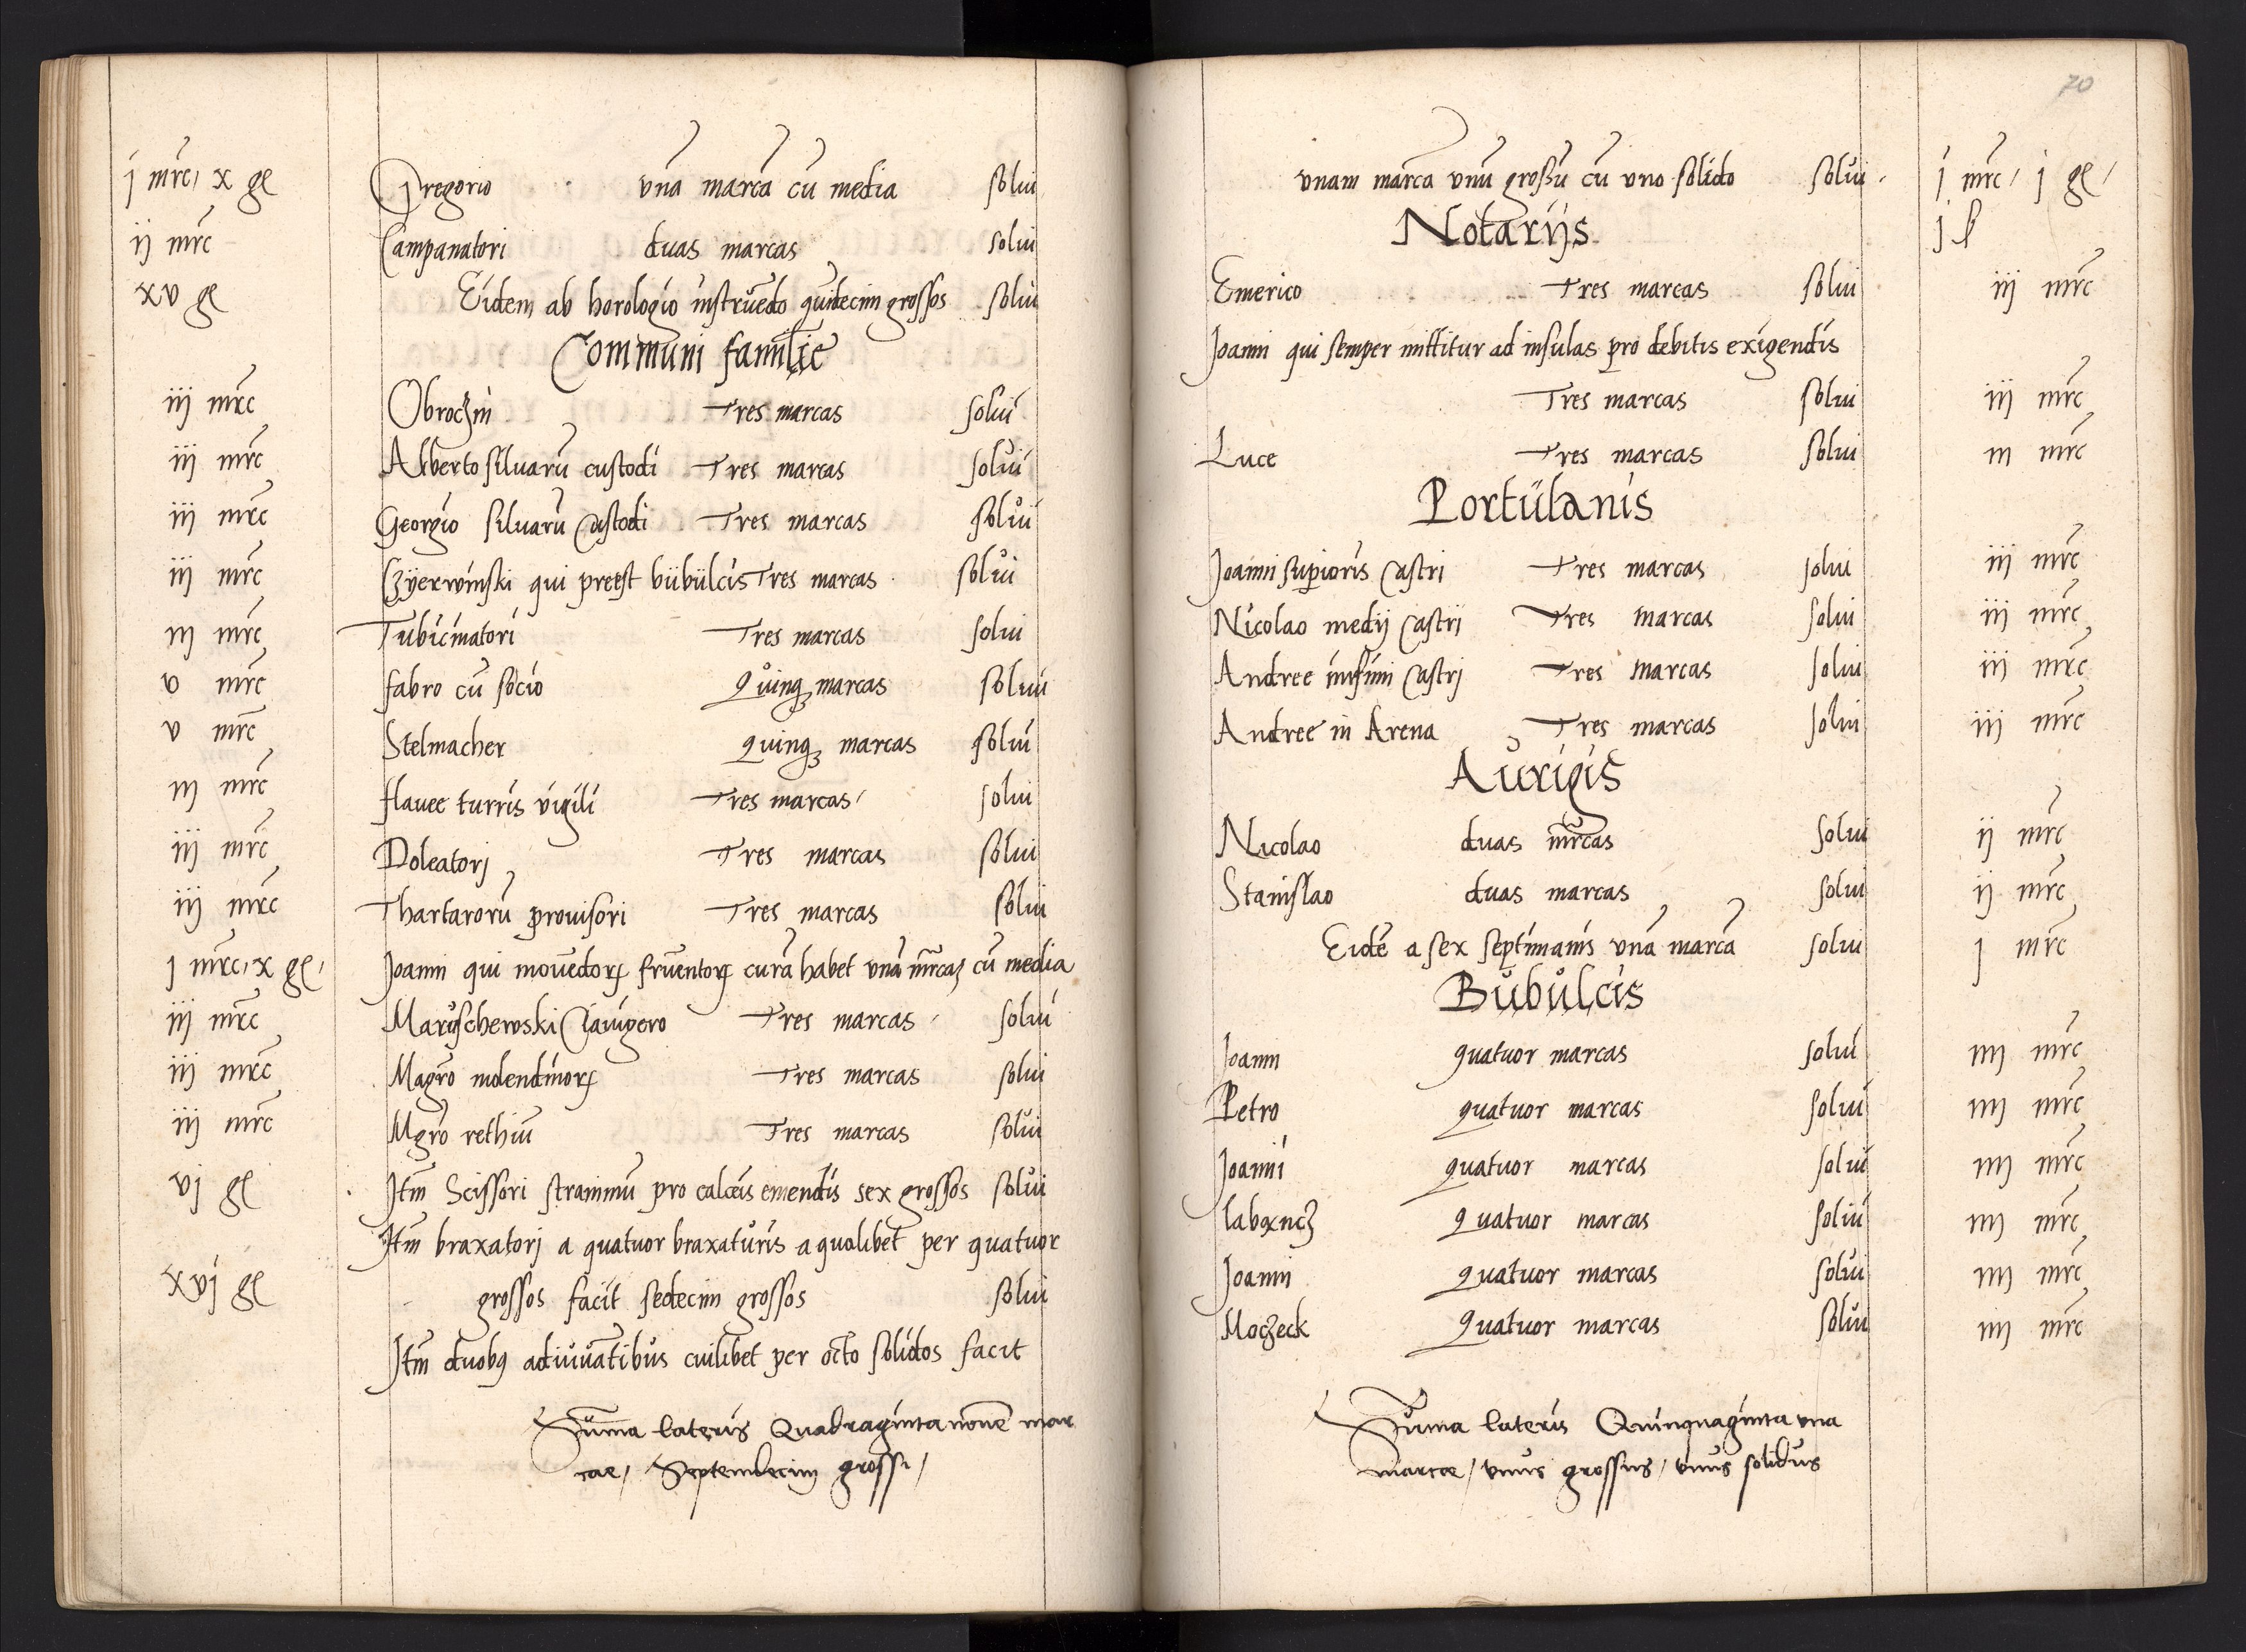 j mrc / x gr Gregorio vna marca cu media solui
ij mrc Campanatori duas marcas solui
xv gr Eidem ab horologio instruedo quidecim grossos solui
Communi familie
iij mrc Obroczni Tres marcas solui
iij mrc Alberto siluaru custodi Tres marcas solui
iij mrc Georgio siluaru Custodi Tres marcas solui
iij mrc Czÿerwinski qui preest bubulcis Tres marcas solui
iij mrc Tubicinatori Tres marcas solui
v mrc fabro cu socio Quinq marcas solui
v mrc Stelmacher Quinq marcas solui
iij mrc flauee turris vigili Tres marcas solui
iij mrc Doleatorj Tres marcas solui
iij mrc Thartaroru prouisori Tres marcas solui
j mrc / x gr / Joanni qui mouedor frumentor cura habet vna mrcaz cu media
iij mrc Maruschewski Claugero Tres marcas solui
iij mrc Magro molendinor Tres marcas solui
iij mrc Mgro rethiu Tres marcas solui
vj gr Jtm Scissori straminu pro calceis emendis sex grossos solui
Jtm braxatorj a quatuor braxaturis a quolibet per quatuor
xvj gr grossos facit sedecim grossos solui
Jtm duobus adiuuatibus cuilibet per octo solidos facit
Suma lateris Quadraginta noue mar
cae / Septemdecim grossi /
70
vnam marca vnu grossu cu vno solido solui j mrc / j gr /
Notarijs j s
Emerico Tres marcas solui iij mrc
Joanni qui semper mittitur ad insulas pro debitis exigendis
Tres marcas solui iij mrc
Luce Tres marcas solui iij mrc
Portulanis
Joanni superioris Castri Tres marcas solui iij mrc
Nicolao medij Castrij Tres marcas solui iij mrc
Andree infimi Castrj Tres marcas solui iij mrc
Andree in Arena Tres marcas solui iij mrc
Aurigis
Nicolao duas mrcas solui ij mrc
Stanislao duas marcas solui ij mrc
Eide a sex septimanis vna marca solui j mrc
Bubulcis
Joanni quatuor marcas solui iiij mrc
Petro quatuor marcas solui iiij mrc
Joanni quatuor marcas solui iiij mrc
Quatuor marcas solui iiij mrc
Joanni Quatuor marcas solui iiij mrc
Moczeck Quatuor marcas solui iiij mrc
Suma lateris Quinquaginta vna
marcae / vnus grossus / vnus solidus